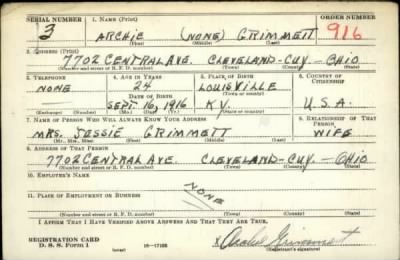 SERIAL NUMBER 1. NAME (Print) ORDER NUMBER
3 ARCHIE (NONE) GRIMMETT 916
(First) (Middle) (Last)
2. ADDRESS (Print)
7702 CENTRAL AVE. CLEVELAND-CUY-OHIO
(Number and street or R. F. D. number) (Town) (County) (State)
3. TELEPHONE 4. AGE IN YEARS 5. PLACE OF BIRTH 6. COUNTRY OF CITIZENSHIP
NONE 24 LOUISVILLE
DATE OF BIRTH (Town or county)
SEPT. 16, 1916 KY. U.S.A.
(Exchange) (Number) (Mo.) (Day) (Yr.) (State or country)
7. NAME OF PERSON WHO WILL ALWAYS KNOW YOUR ADDRESS 8. RELATIONSHIP OF THAT PERSON
MRS. JESSIE GRIMMETT WIFE
(Mr., Mrs., Miss) (First) (Middle) (Last)
9. ADDRESS OF THAT PERSON
7702 CENTRAL AVE. CLEVELAND-CUY-OHIO
(Number and street or R. F. D. number) (Town) (County) (State)
10. EMPLOYER'S NAME
NONE
11. PLACE OF EMPLOYMENT OR BUSINESS
(Number and street or R. F. D. number) (Town) (County) (State)
I AFFIRM THAT I HAVE VERIFIED ABOVE ANSWERS AND THAT THEY ARE TRUE.
REGISTRATION CARD
D. S. S. Form 1 (over) 16-17105 X Archie Grimmett
(Registrant's signature)